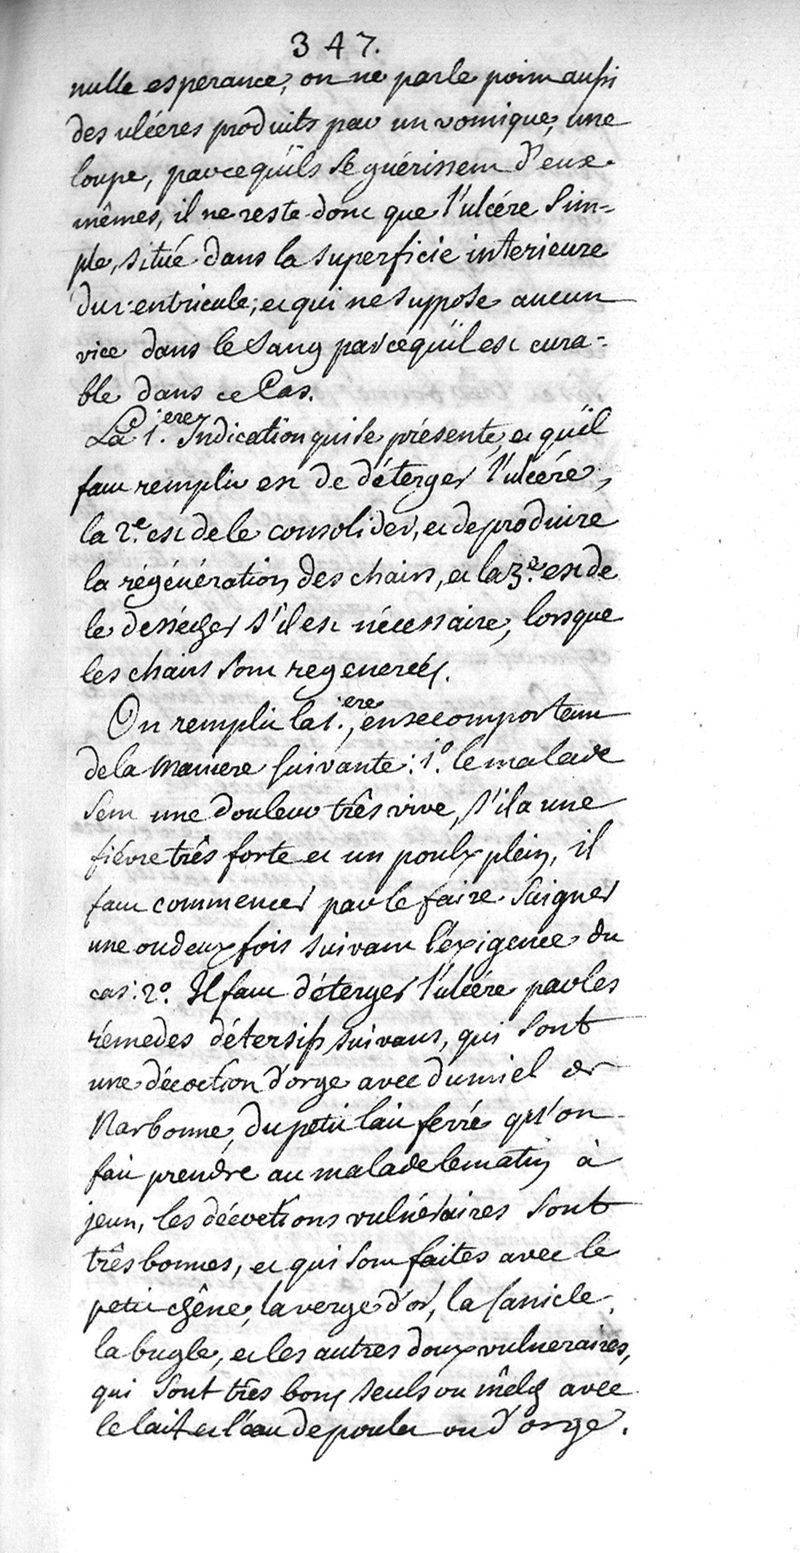 347.
nulle esperance, on ne parle point aussi
des ulcéres produits par un vomique, une
loupe, parcequ'ils se guérissent d'eux-
mêmes, il ne reste donc que l'ulcére sim-
ple, situé dans la superficie interieure
du ventricule, et qui ne suppose aucun
vice dans le sang parcequ'il est cura-
ble dans ce Cas.
La 1.ere Indication qui se présente, et qu'il
faut remplir est de déterger l'ulcére,
la 2.e est de le consolider, et de produire
la régénération des chairs, et la 3.e est de
le dessécher s'il est nécessaire, lorsque
les chairs sont regenerées.
On remplit la 1.ere, en se comportant
de la maniere suivante: 1.o le malade
sent une douleur três vive, s'il a une
fiévre três forte et un poulx plein, il
faut commencer par le faire saigner
une ou deux fois suivant l'exigence du
cas: 2.o Il faut déterger l'ulcére par les
rémedes détersifs suivans, qui sont
une décoction d'orge avec du miel de
Narbonne, du petit lait ferré qu'on
fait prendre au malade le matin à
jeun, les décoctions vulnéraires sont
três bonnes, et qui sont faites avec le
petit chêne, la verge d'or, la sanicle,
la bugle, et les autres doux vulneraires,
qui sont três bons seuls ou mêlés avec
le lait et l'eau de poulet ou d'orge.